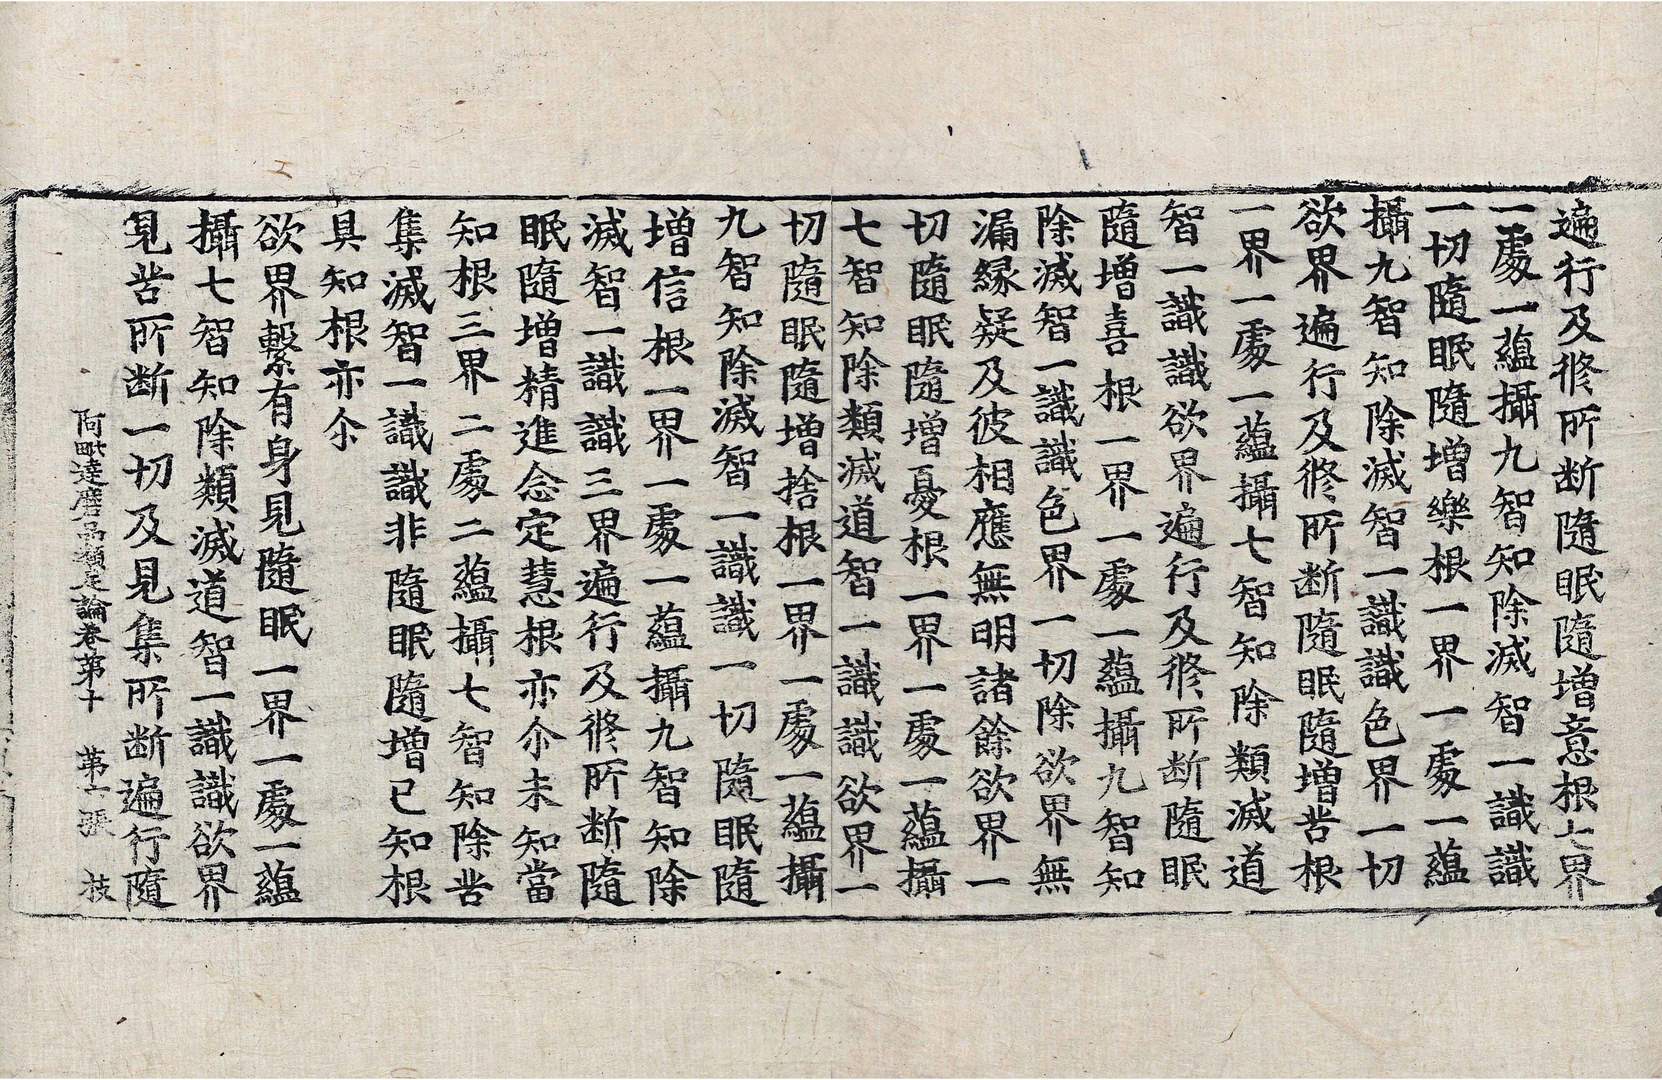 遍行及修所断隨眠隨增意根七界
一處一蘊攝九智知除滅智一識識
一切隨眠隨增樂根一界一處一蘊
攝九智知除滅智一識識色界一切
欲界遍行及修所断隨眠隨增苦根
一界一處一蘊攝七智知除類滅道
智一識識欲界遍行及修所断隨眠
隨增喜根一界一處一蘊攝九智知
除滅智一識識色界一切除欲界無
漏緣疑及彼相應無明諸餘欲界一
切隨眠隨增憂根一界一處一蘊攝
七智知除類滅道智一識識欲界一
切隨眠隨增捨根一界一處一蘊攝
九智知除滅智一識識一切隨眠隨
增信根一界一處一蘊攝九智知除
滅智一識識三界遍行及修所断隨
眠隨增精進念定慧根亦尒未知當
知根三界二處二蘊攝七智知除苦
集滅智一識識非隨眠隨增已知根
具知根亦尒
欲界繫有身見隨眠一界一處一蘊
攝七智知除類滅道智一識識欲界
見苦所断一切及見集所断遍行隨
阿毗達磨品類足論卷第十 第 張